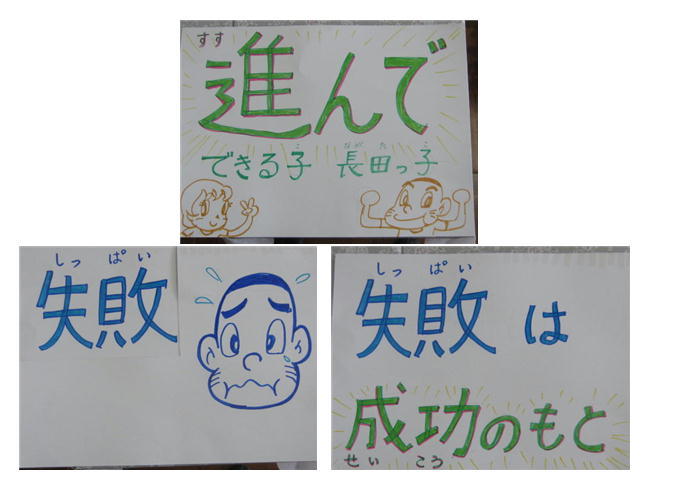 すす
進んで
こ なが た こ
できる子 長田っ子
しっ ぱい
失敗
しっ ぱい
失敗は
成功のもと
せい こう